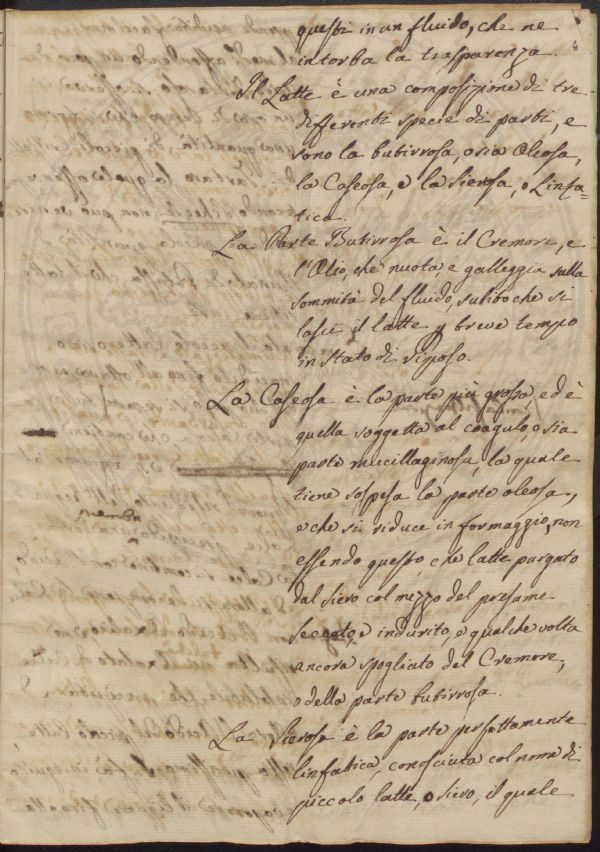 questi in un fluido, che ne
intorba la trasparenza.
Il Latte è una composizione di tre
differenti specie di parti, e
sono la butirrosa, o sia Oleosa,
la Caseosa, e la Sierosa, o Linfa-
tica.
La Parte Butirrosa è il Cremore, e
l'Olio, che nuota, e galleggia sulla
sommità del fluido, subito che si
lasci il latte p breve tempo
in stato di riposo.
La Caseosa è la parte più grossa, ed è
quella soggetta al coagulo, o sia
parte mucillaginosa, la quale
tiene sospesa la parte oleosa,
e che si riduce in formaggio, non
essendo questo, che latte purgato
dal siero col mezzo del presame
seccato, e indurito, e qualche volta
ancora spogliato del Cremore,
o della parte butirrosa.
La Sierosa è la parte perfettamente
linfatica, conosciuta col nome di
piccolo latte, o siero, il quale